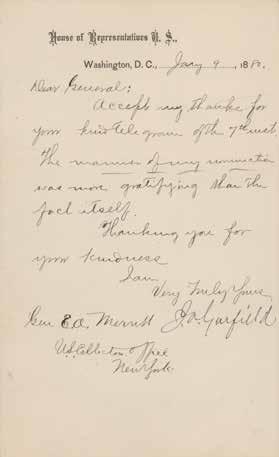 House of Representatives U. S.,
Washington, D. C., Jany 9, 1880.
Dear General:
Accept my thanks for
your kind telegram of the 7th inst.
The manner of my nomination
was more gratifying than the
fact itself.
Thanking you for
your kindness
I am
Very Truly Yours
J. A. Garfield
Gen E. A. Merritt
U.S. Collector Office
New York